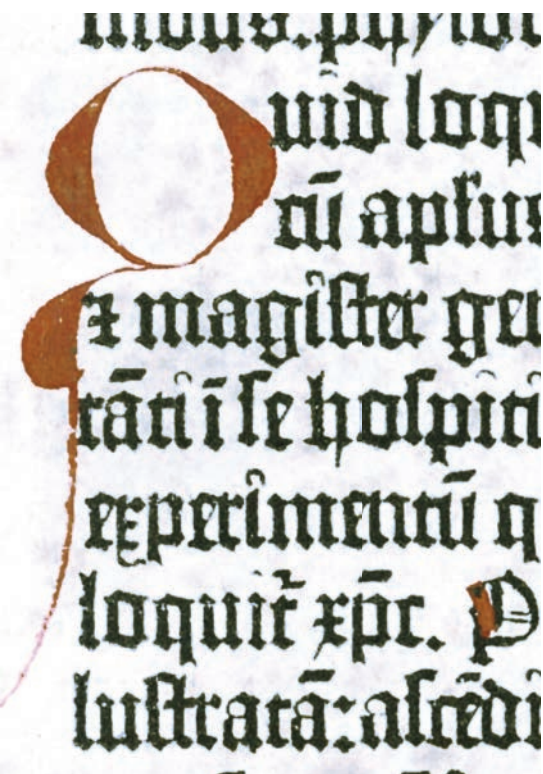 Quid loq
cū apłus
⁊ magiſter gen
tāti ī ſe hoſpiti
experimentū q
loquit᷑ xp̄c. P
luſtratā: aſcēdi